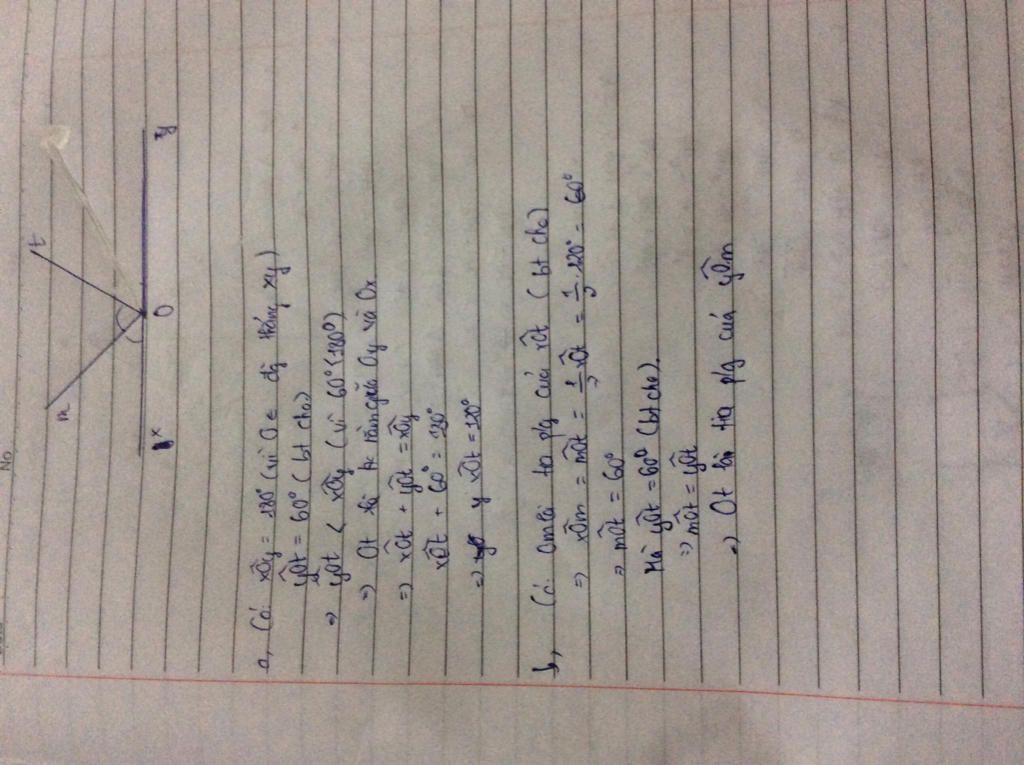 No
m
t
x
O
y
a, Có: xÔy = 180° (vì O ∈ đg thẳng xy)
yÔt = 60° (bt cho)
=> yÔt < xÔy (vì 60° < 180°)
=> Ot là tia nằm giữa Oy và Ox
=> xÔt + yÔt = xÔy
xÔt + 60° = 180°
=> xÔt = 120°
b, Có: Om là tia p/g của xÔt (bt cho)
=> xÔm = mÔt = 1/2 xÔt = 1/2 . 120° = 60°
=> mÔt = 60°
Mà yÔt = 60° (bt cho)
=> mÔt = yÔt
=> Ot là tia p/g của yÔm